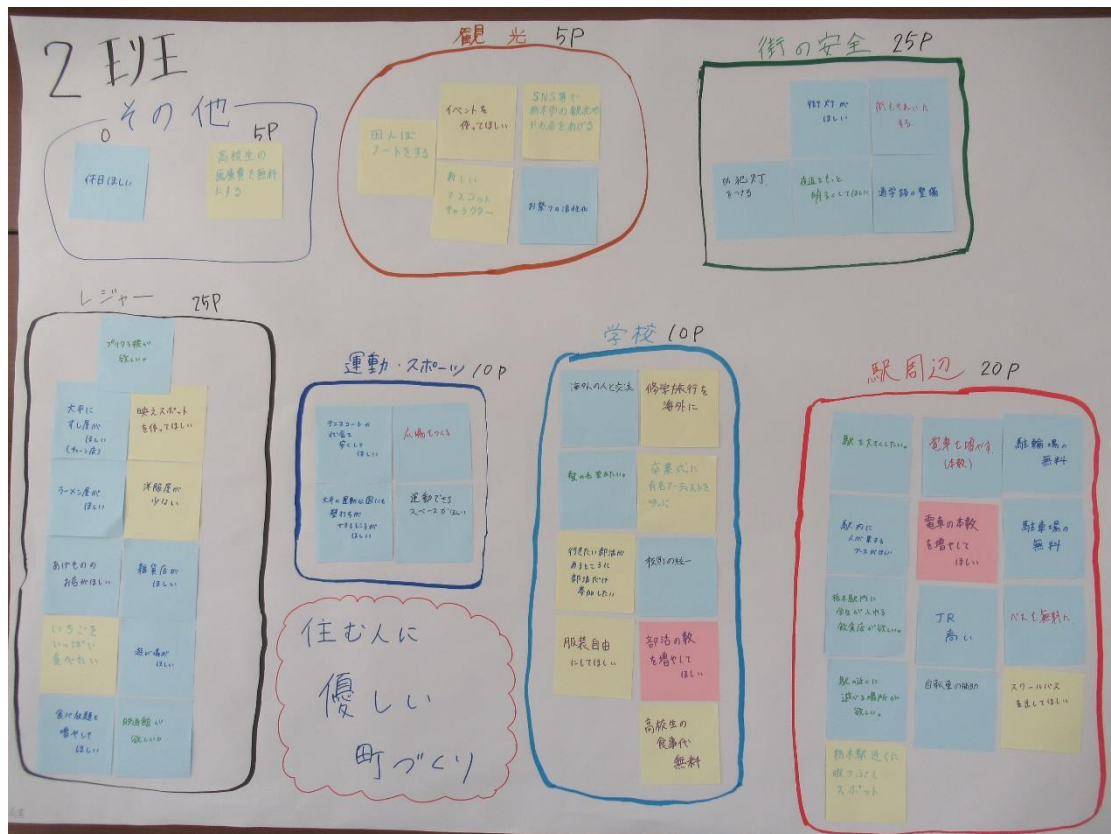 2班
その他
0
5P
休日ほしい
高校生の
医療費を無料
にする
観光 5P
田んぼ
アートをする
イベントを
作ってほしい
SNS等で
新しい
マスコット
キャラクター
お祭りの活性化
街の安全 25P
街灯が
ほしい
する
防犯灯
をつける
夜道をもっと
明るくしてほしい
通学路の整備
レジャー 25P
プリクラ機が
欲しい。
大平に
すし屋が
ほしい
(チェーン店)
映えスポット
を作ってほしい
ラーメン屋が
ほしい
洋服屋が
少ない
あげものの
お店がほしい
雑貨店が
ほしい
いちごを
いっぱい
食べたい
遊び場が
ほしい
食べ放題を
増やして
ほしい
映画館が
欲しい。
運動・スポーツ 10P
テニスコートの
代金を
安くして
ほしい
広場をつくる
大平の運動公園にも
壁打ちが
できるところが
ほしい
運動できる
スペースがほしい
住む人に
優しい
町づくり
学校 10P
海外の人と交流
修学旅行を
海外に
卒業式に
有名アーティストを
呼ぶ
行きたい部活が
あるところに
部活だけ
参加したい
校則の統一
服装自由
にしてほしい
部活の数
を増やして
ほしい
高校生の
食事代
無料
駅周辺 20P
駅を大きくしたい。
電車を増やす
(本数)
駐輪場の
無料
駅内に
電車の本数
を増やして
ほしい
駐車場の
無料
栃木駅内に
学生が入れる
飲食店が欲しい。
JR
高い
バスを無料に
駅の近くに
遊べる場所が
欲しい。
自転車の補助
スクールバス
を出してほしい
栃木駅近くに
暇つぶし
スポット